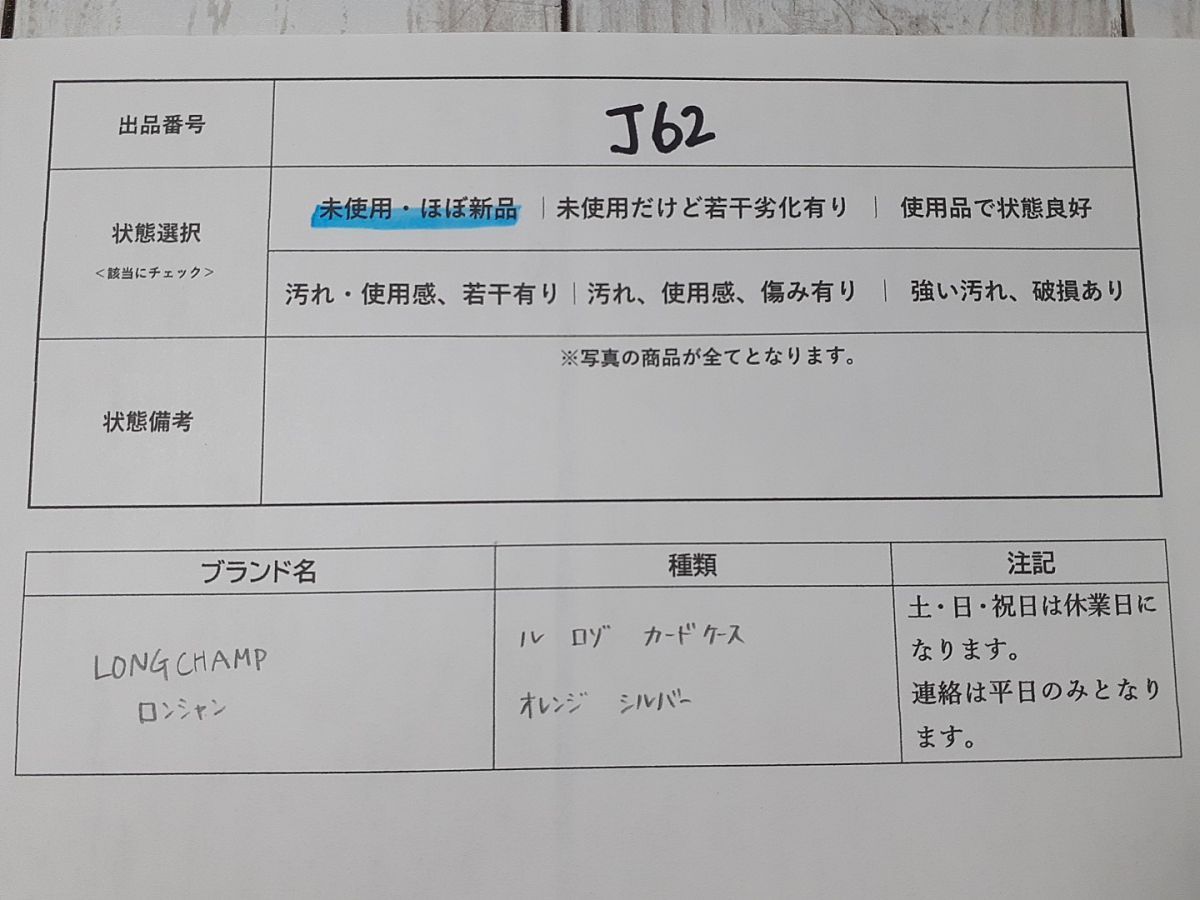 出品番号
J62
状態選択
<該当にチェック>
未使用・ほぼ新品 | 未使用だけど若干劣化有り | 使用品で状態良好
汚れ・使用感、若干有り | 汚れ、使用感、傷み有り | 強い汚れ、破損あり
状態備考
※写真の商品が全てとなります。
ブランド名
種類
注記
LONGCHAMP
ロンシャン
ル ロゾ カードケース
オレンジ シルバー
土・日・祝日は休業日に
なります。
連絡は平日のみとなり
ます。